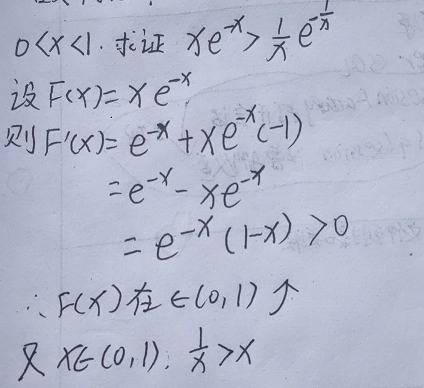 0<x<1. 求证 xe^{-x} > \frac{1}{x} e^{-\frac{1}{x}}
设 F(x)=xe^{-x}
则 F'(x)=e^{-x}+xe^{-x}(-1)
=e^{-x}-xe^{-x}
=e^{-x}(1-x)>0
∴ F(x)在∈(0,1)↑
又 x∈(0,1): \frac{1}{x}>x